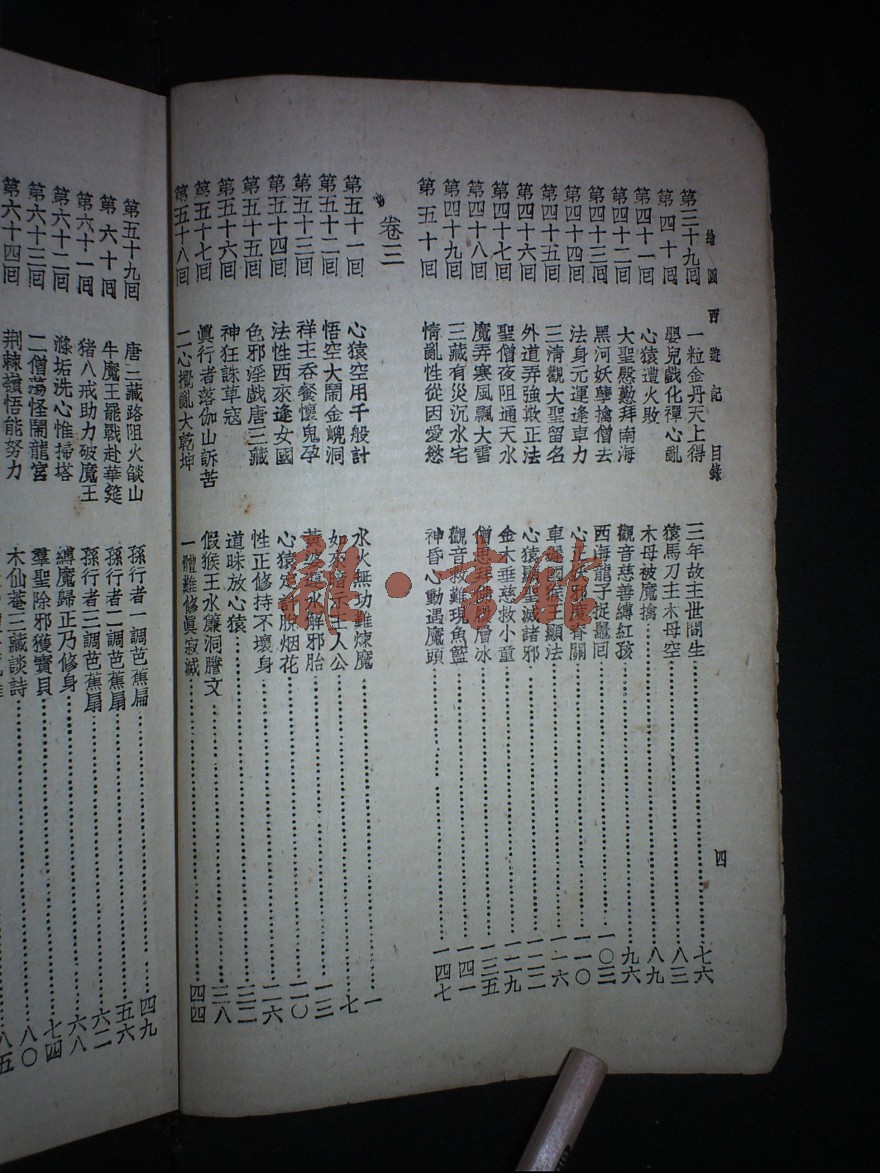 繪圖西遊記 目錄 四
第三十九回 一粒金丹天上得 三年故主世間生 七六
第四十回 嬰兒戲化禪心亂 猿馬刀圭木母空 八三
第四十一回 心猿遭火敗 木母被魔擒 八九
第四十二回 大聖慇懃拜南海 觀音慈善縛紅孩 九六
第四十三回 黑河妖孽擒僧去 西海龍子捉鼉回 一〇三
第四十四回 法身元運逢車力 心正妖邪度脊關 一一〇
第四十五回 三清觀大聖留名 車遲國猴王顯法 一一六
第四十六回 外道弄強欺正法 心猿顯聖滅諸邪 一二二
第四十七回 聖僧夜阻通天水 金木垂慈救小童 一二九
第四十八回 魔弄寒風飄大雪 僧思拜佛履層冰 一三五
第四十九回 三藏有災沉水宅 觀音救難現魚籃 一四一
第五十回 情亂性從因愛慾 神昏心動遇魔頭 一四七
卷三
第五十一回 心猿空用千般計 水火無功難煉魔 一
第五十二回 悟空大鬧金㠋洞 如來暗示主人公 七
第五十三回 禪主吞餐懷鬼孕 黃婆運水解邪胎 一三
第五十四回 法性西來逢女國 心猿定計脫烟花 二〇
第五十五回 色邪淫戲唐三藏 性正修持不壞身 二六
第五十六回 神狂誅草寇 道昧放心猿 三二
第五十七回 眞行者落伽山訴苦 假猴王水簾洞謄文 三八
第五十八回 二心攪亂大乾坤 一體難修眞寂滅 四四
第五十九回 唐三藏路阻火燄山 孫行者一調芭蕉扇 四九
第六十回 牛魔王罷戰赴華筵 孫行者二調芭蕉扇 五六
第六十一回 猪八戒助力破魔王 孫行者三調芭蕉扇 六二
第六十二回 滌垢洗心惟掃塔 縛魔歸正乃修身 六八
第六十三回 二僧蕩怪鬧龍宮 羣聖除邪獲寶貝 七四
第六十四回 荆棘嶺悟能努力 木仙菴三藏談詩 八〇
八五
龍·書館